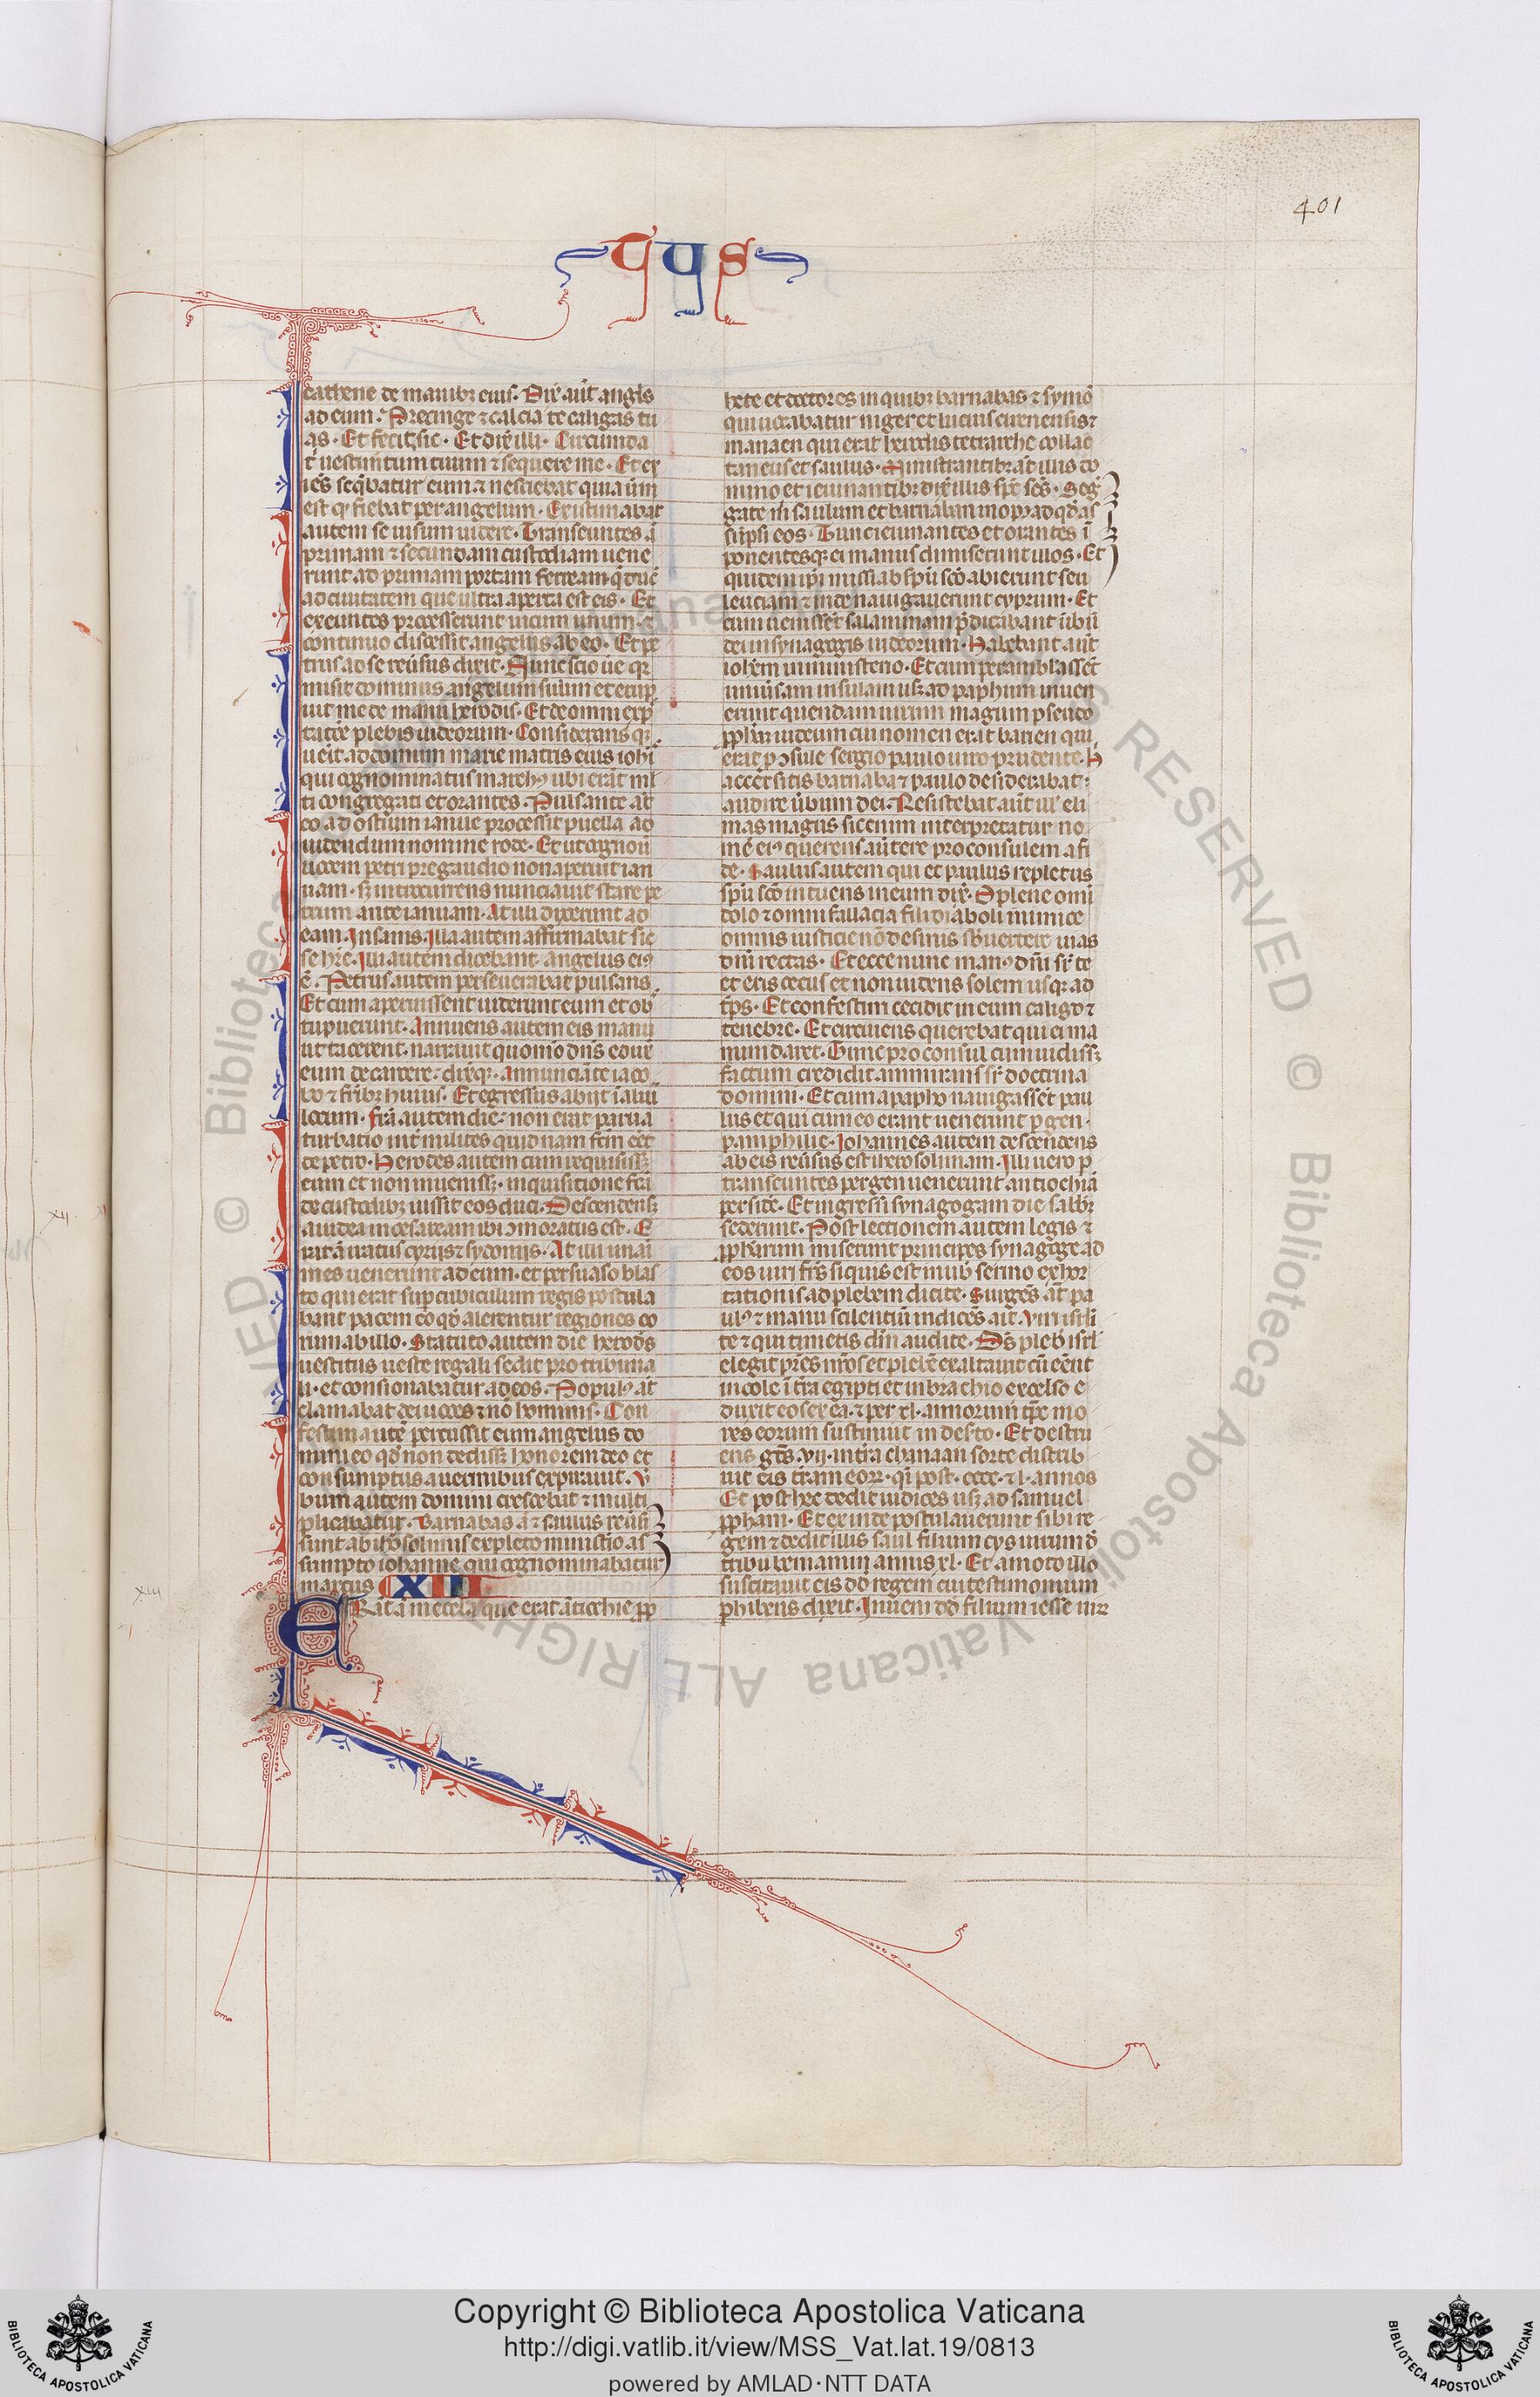 401
TUS
cathene de manibꝫ eius. Dix̄ aūt angl̄s
ad eum. Precinge ⁊ calcia te caligas tu
as. Et fecit sic. Et dix̄ illi. Circumda
t̄ uestimtum tuum ⁊ sequere me. Et ex
iēs seq̄batur eum ⁊ nesciebat quia ūm
est qͥ fiebat per angelum. Existimabat
autem se uisum uidere. Transeuntes ā
primam ⁊ secundam custodiam uene
runt ad primam portam ferream q̄ duē
ad ciuitatem que ultra aperta est eis. Et
exeuntes processerunt uicum unum. ⁊
continuo discessit angelus ab eo. Et pe
trus ad se reūsus dixit. Nunc scio ūe qꝛ
misit dominus angelum suum et erip
uit me de manu herodis. Et de omni exp̄
tatōe plebis iudeorum. Consideransqꝫ
uēit ad domum marie matris eius iohī
qui cognominatus marchꝰ ubi erāt ml̄
ti congregati et orantes. Pulsante āt
eo ad ostium ianue processit puella ad
uidendum nomine rode. Et ut cognoū
uocem petri pre gaudio non aperuit ian
uam. sꝫ intro currens nunciauit stare pe
trum ante ianuam. At illi dixerunt ad
eam. Insanis. Illa autem affirmabat sic
se hr̄e. Illi autem dicebant. angelus eiꝰ
ē. Petrus autem perseuerabat pulsans.
Et cum aperuissent uiderunt eum et ob
stupuerunt. Annuens autem eis manu
ut tacerent. narrauit quomō dn̄s edux̄
eum de carcere. dix̄qꝫ. Annunciate iaco
bo ⁊ fr̄ibꝫ huius. Et egressus abijt ī aliū
locum. Fc̄a autem die. non erat parua
turbatio int̄ milites quid nam fc̄m eēt
de petro. Herodes autem cum requisissꝫ
eum et non inuenissꝫ. inquisitione fc̄ā
de custodibꝫ iussit eos duci. Descendensqꝫ
a iudea in cesaream ibi ↄmoratus est. E
rat ā iratus tyrijs ⁊ sydonijs. At illi unāi
mes uenerunt ad eum. et persuaso blas
to qui erat sup̄ cubiculum regis postula
bant pacem eo qd̄ alerentur regiones eo
rum ab illo. Statuto autem die herod̄s
uestitus ueste regali sedit pro tribuna
li. et consionabatur ad eos. Populꝰ āt
clamabat dei uoces ⁊ nō hominis. Con
festim autē percussit eum angelus do
mini eo qd̄ non dedissꝫ honorem deo et
consumptus a uermibus expirauit. V̄
bum autem domini crescebat ⁊ multi
plicabatur. Barnabas ā ⁊ saulus reūsi
sunt ab ihr̄osolimis expleto ministīo as
sumpto iohanne qui cognominabatur
marcus XIII
ERat ā in ecc̄la que erat ātiochie pp̄
hete et doctores in quibꝫ barnabas ⁊ symō
qui uocabatur niger et lucius cirenensis ⁊
manaen qui erat herodis tetrarche collac
taneus et saulus. Ministrantibꝫ āt illis do
mino et ieiunantibꝫ dix̄ illis sp̄c sc̄s. Seg̃
gate m̄ saulum et barnaban in op̄ ad qd̄ as
sūpsi eos. Tunc ieiunantes et orantes ī
ponentesqꝫ ei manus dimiserunt illos. Et
quidem ip̄i missi ab sp̄u sc̄o abierunt seu
leuciam ⁊ inde nauigauerunt cyprum. Et
cum uenissēt salaminam p̄dicabant ūbū
dei in synagogis iudeorum. Habebant aūt
ioh̄em in ministerio. Et cum perambl̄assēt
uniūsam insulam usqꝫ ad paphum inuen
erunt quendam uirum magum pseudo
pp̄ham iudeum cui nomen erat barieu qui
erat p̄ ↄsule sergio paulo uiro prudente. H̄
accersitis barnaba ⁊ paulo desiderabat
audire ūbum dei. Resistebat aūt ill̄ eli
mas magus sic enim interpretatur no
mē eiꝰ querens aūtere proconsulem a fi
de. Saulus autem qui et paulus repletus
sp̄u sc̄o intuens in eum dix̄. O plene omī
dolo ⁊ omni fallacia fili diaboli inimice
omnis iusticie nō desinis sb̄uertere uias
dn̄i rectas. Et ecce nunc manꝰ dn̄i sr̄ te
et eris cecus et non uidens solem usqꝫ ad
tp̄s. Et confestim cecidit in eum caligo ⁊
tenebre. Et circuiens querebat qui ei ma
num daret. Tunc proconsul cum uidissꝫ
factum credidit ammirans sr̄ doctrina
domini. Et cum a papho nauigassēt pau
lus et qui cum eo erant uenerunt p̄gen
pamphilie. Iohannes autem descendens
ab eis reūsus est iherosolimam. Illi uero p̄
transeuntes pergen uenerunt antiochiā
perside. Et ingressi synagogam die sabb̄ꝫ
sederunt. Post lectionem autem legis ⁊
pp̄harum miserunt principes synagoge ad
eos uiri fr̄s si quis est in uob̄ sermo exhor
tationis ad plebem dicite. Surgēs āt pa
ulꝰ ⁊ manu scilentiū indicēs ait. Viri isrl̄i
te ⁊ qui timetis dm̄ audite. Ds̄ pleb̄ isrl̄
elegit pr̄es nr̄os et plebē exaltauit cū eēnt
incole ī tr̄a egipti et in brachio excelso e
duxit eos ex ea. ⁊ per xl. annorum tp̄c mo
res eorum sustinuit in deserto. Et destru
ens gēs. vij. in tr̄a chanaan sorte distrib
uit eis tr̄am eoꝝ. q̄i post. cccc. ⁊ l. annos
Et post hec dedit iudices usqꝫ ad samuel
pp̄ham. Et exinde postulauerunt sibi re
gem ⁊ dedit illis saul filium cys uirum d̄
tribu beniamin annis xl. Et amoto illo
suscitauit eis dd̄ regem cui testimonium
phibens dixit. Inueni dd̄ filium iesse uiꝝ
XII
XIII
Copyright © Biblioteca Apostolica Vaticana
http://digi.vatlib.it/view/MSS_Vat.lat.19/0813
powered by AMLAD·NTT DATA
BIBLIOTECA APOSTOLICA VATICANA
BIBLIOTECA APOSTOLICA VATICANA
© Biblioteca Apostolica Vaticana ALL RIGHTS RESERVED